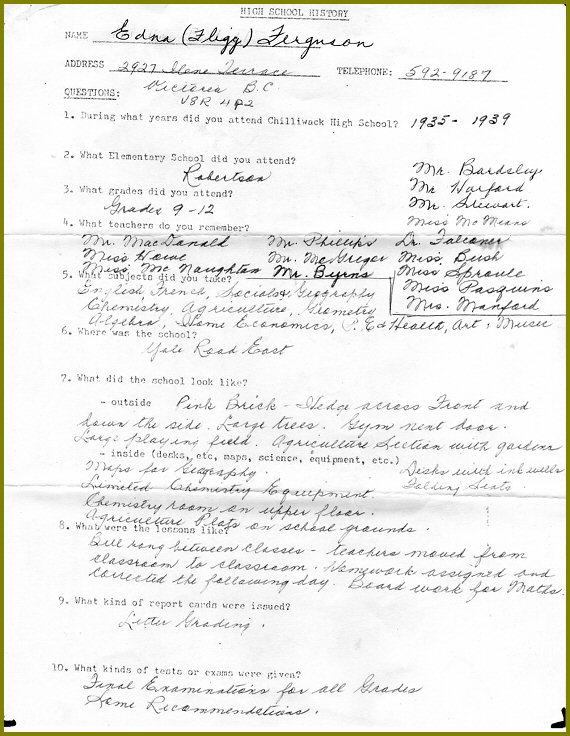 HIGH SCHOOL HISTORY
NAME Edna (Fligg) Ferguson
ADDRESS 2927 Ilene Terrace TELEPHONE: 592-9187
Victoria B.C
QUESTIONS: V8R 4P2
1. During what years did you attend Chilliwack High School? 1935 - 1939
2. What Elementary School did you attend? Mr. Bardsley
Robertson Mr Harford
3. What grades did you attend? Mr. Stewart.
Grades 9-12 Miss McMeans
4. What teachers do you remember?
Mr. MacDonald Mr. Phillips Dr. Falconer
Miss Howe Mr. McGregor Miss Bush
Miss. Mc Naughton Mr. Byrns Miss Sproule
5. What subjects did you take? Miss Pasquins
English, French, Socials & Geography Mrs. Manford
Chemistry, Agriculture, Geometry
Algebra, Home Economics, P.E & Health, Art & Music
6. Where was the school?
Yale Road East
7. What did the school look like?
- outside Pink Brick - Hedge across Front and
down the side. Large trees. Gym next door.
Large playing field. Agriculture Section with gardens
- inside (desks, etc, maps, science, equipment, etc.)
Maps for Geography. Desks with ink wells
Limited Chemistry Equipment Folding Seats
Chemistry room on upper floor.
Agriculture Plots on school grounds.
8. What were the lessons like?
Bell rang between classes - teachers moved from
classroom to classroom. Homework assigned and
corrected the following day. Board work for Maths.
9. What kind of report cards were issued?
Letter Grading.
10. What kinds of tests or exams were given?
Final Examinations for all Grades
Some Recommendations.